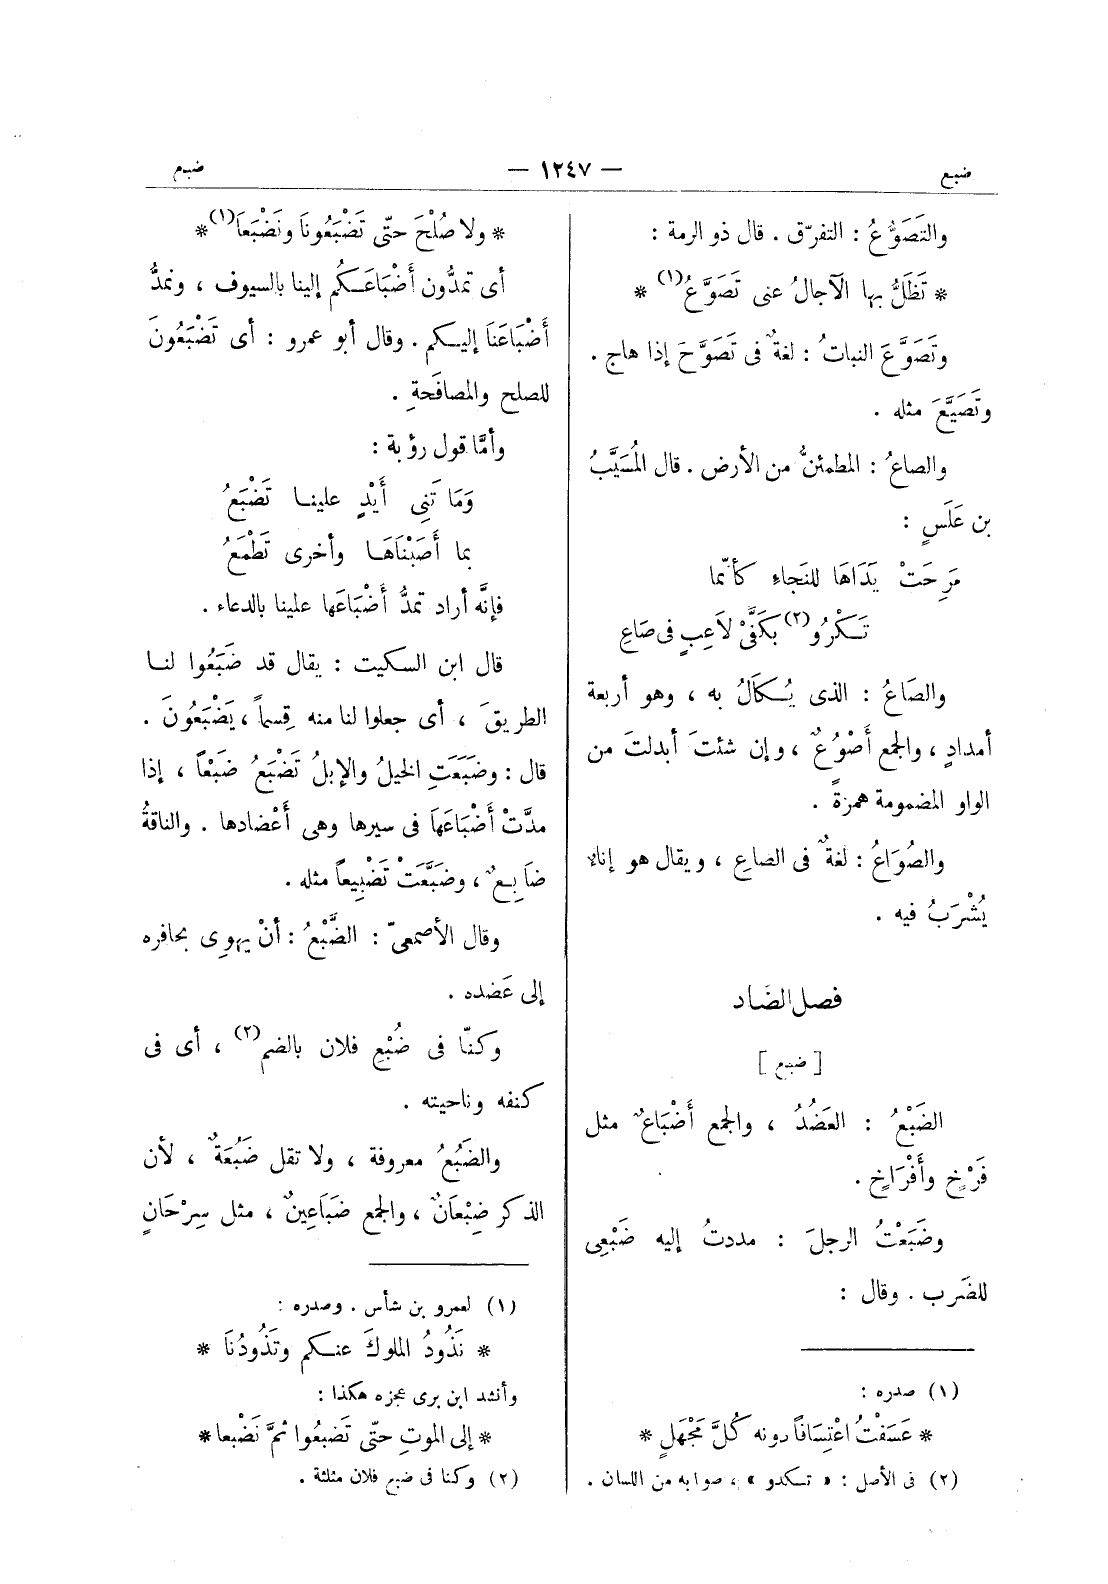 ضبع
— ١٢٤٧ —
ضبع
والتَصَوُّعُ : التفرّق . قال ذو الرمة :
* تَظَلُّ بها الآجالُ عنى تَصَوَّعُ (١) *
وتَصَوَّعَ النباتُ : لغةٌ فى تَصَوَّحَ إذا هاج .
وتَصَيَّعَ مثله .
والصاعُ : المطمئنُّ من الأرض . قال المُسَيَّبُ
بن عَلَسٍ :
مَرِحَتْ يَدَاهَا للنَجاءِ كأنّما
تَكْرُو (٢) بكَفَّىْ لاَعِبٍ فى صَاعِ
والصَاعُ : الذى يُكَالُ به ، وهو أربعة
أمدادٍ ، والجمع أَصْوُعٌ ، وإن شئتَ أبدلتَ من
الواو المضمومة همزةً .
والصُوَاعُ : لغةٌ فى الصاعِ ، ويقال هو إناء
يُشْرَبُ فيه .
فصل الضَاد
[ ضبع ]
الضَبْعُ : العَضُدُ ، والجمع أَضْبَاعٌ مثل
فَرْخٍ وأَفْرَاخٍ .
وضَبَعْتُ الرجلَ : مددتُ إليه ضَبْعِى
للضَرب . وقال :
(١) صدره :
* عَسَفْتُ اعْتِسَافاً دونه كُلَّ مَجْهَلٍ *
(٢) فى الأصل : « تكدو » ، صوابه من اللسان .
* ولا صُلْحَ حتّى تَضْبَعُونَا ونَضْبَعَا (١) *
أى تمدُّون أَضْبَاعَكُم إلينا بالسيوف ، ونمدُّ
أَضْبَاعَنَا إليكم . وقال أبو عمرو : أى تَضْبَعُونَ
للصلح والمصافَحةِ .
وأمَّا قول رؤبة :
وَمَا تَنِى أَيْدٍ علينا تَضْبَعُ
بما أَصَبْنَاهَا وأخرى تَطْمَعُ
فإنَّه أراد تمدُّ أَضْبَاعَها علينا بالدعاء .
قال ابن السكيت : يقال قد ضَبَعُوا لنا
الطريقَ ، أى جعلوا لنا منه قِسماً ، يَضْبَعُونَ .
قال : وضَبَعَتِ الخيلُ والإبلُ تَضْبَعُ ضَبْعاً ، إذا
مدَّتْ أَضْبَاعَهَا فى سيرها وهى أَعْضادها . والناقةُ
ضَابِعٌ ، وضَبَّعَتْ تَضْبِيعاً مثله .
وقال الأصمعىّ : الضَّبْعُ : أنْ يهوِى بحافره
إلى عَضده .
وكنّا فى ضُبْعِ فلان بالضم (٢) ، أى فى
كنفه وناحيته .
والضَبُعُ معروفة ، ولا تقل ضَبُعَةٌ ، لأن
الذكر ضِبْعَانٌ ، والجمع ضَبَاعِينٌ ، مثل سِرْحَانٍ
(١) لعمرو بن شأس . وصدره :
* نَذُودُ الملوكَ عنكم وتَذُودُنَا *
وأنشد ابن برى عجزه هكذا :
* إلى الموتِ حتّى تَضبَعُوا ثمَّ نَضْبعا *
(٢) وكنا فى ضبع فلان مثلثة .